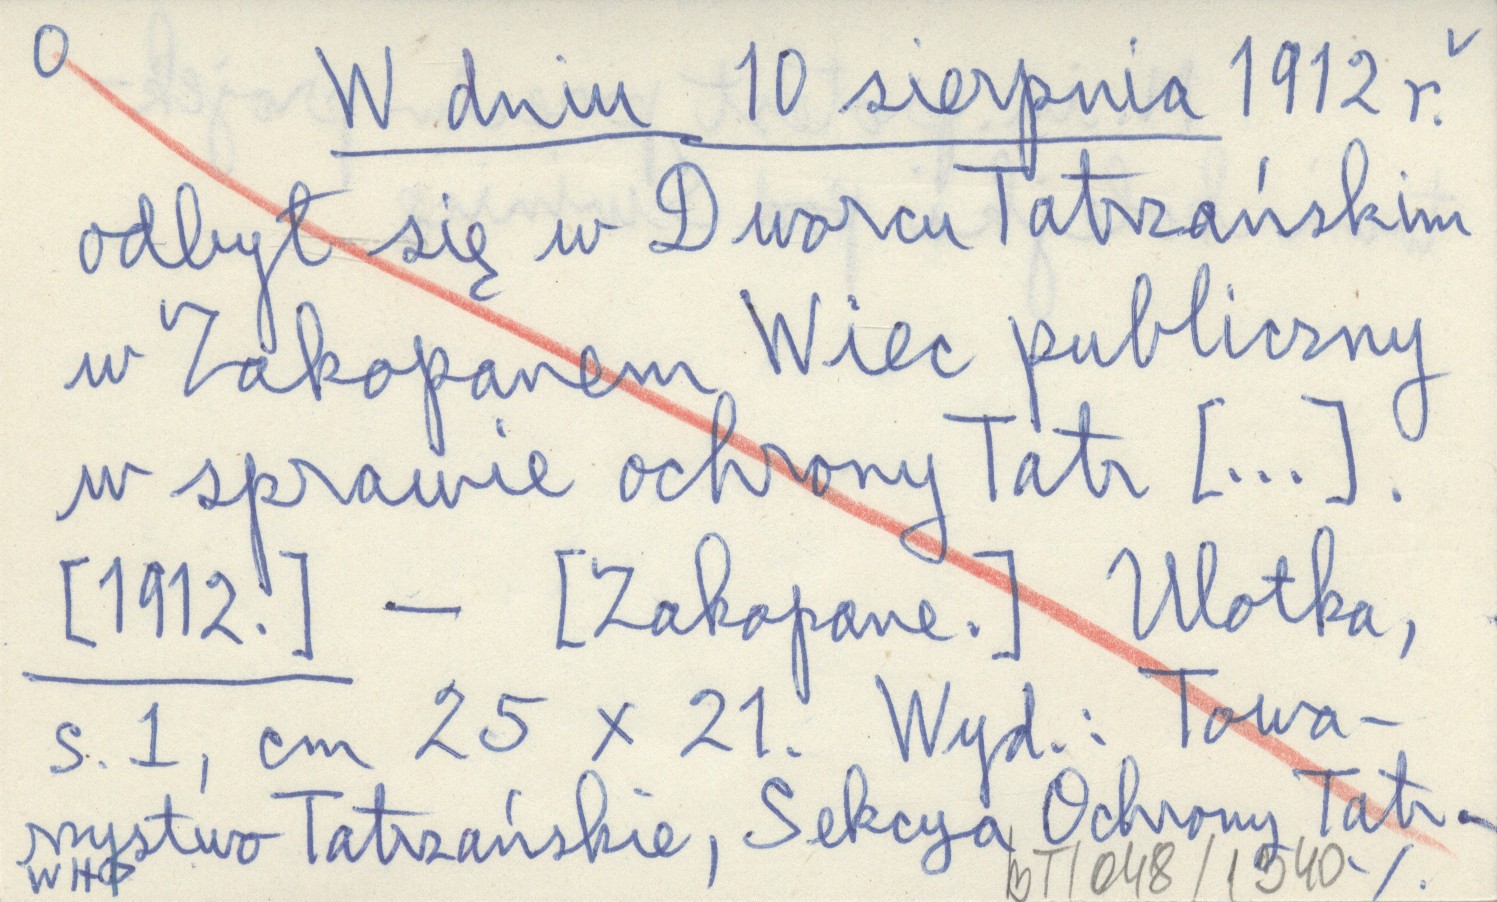 O
W dniu 10 sierpnia 1912 r.
odbył się w Dworcu Tatrzańskim
w Zakopanem Wiec publiczny
w sprawie ochrony Tatr [...].
[1912.] — [Zakopane.] Ulotka,
s. 1, cm 25 x 21. Wyd.: Towa-
rzystwo Tatrzańskie, Sekcya Ochrony Tatr.-
WHP /048/1340-/.